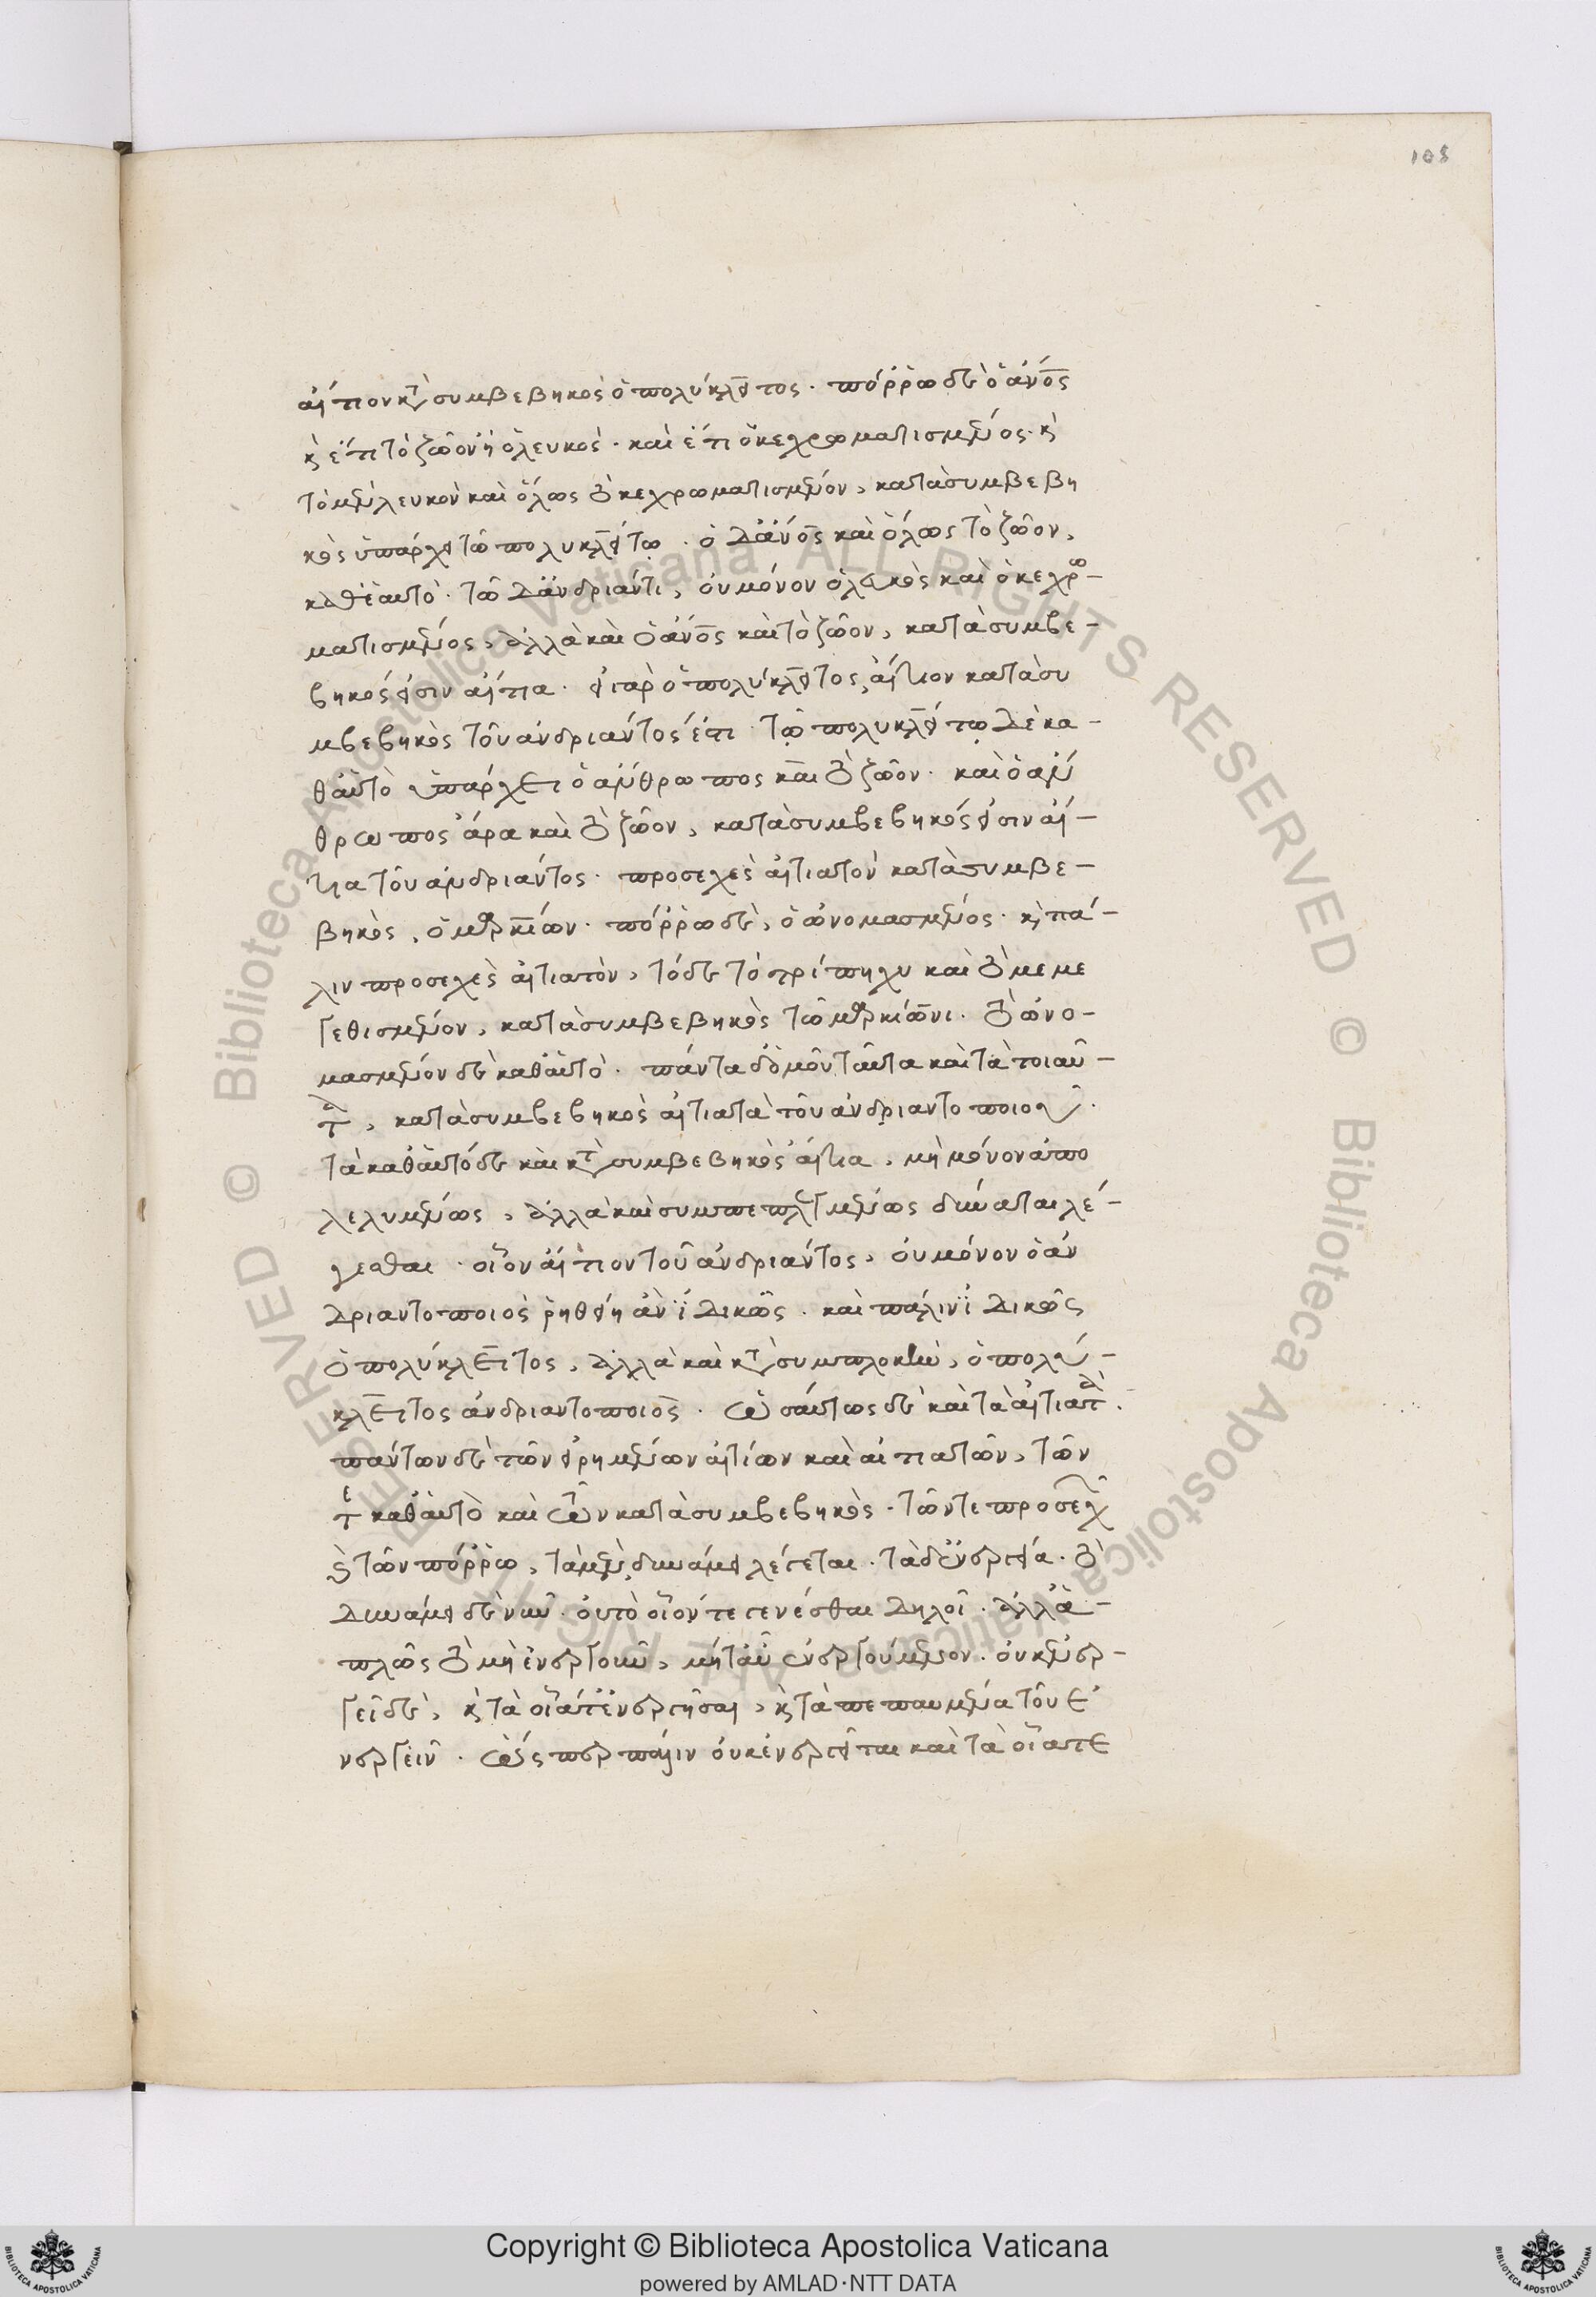 105
αἴτιον κατὰ συμβεβηκὸς ὁ πολύκλειτος. πόρρω δὲ ὁ ἄνος
κ ἔτι τὸ ζῶον ἢ ὁ λευκός. καὶ ἔτι ὁ κεχρωματισμένος. κ
τὸ μὲν λευκὸν καὶ ὅλως τὸ κεχρωματισμένον, κατὰ συμβεβη
κὸς ὑπάρχει τῶ πολυκλείτω. ὁ δ' ἄνος καὶ ὅλως τὸ ζῶον,
καθ' ἑαυτό. τῶ δ' ἀνδριάντι, οὐ μόνον ὁ λευκὸς καὶ ὁ κεχρω-
ματισμένος, ἀλλὰ καὶ ὁ ἄνος καὶ τὸ ζῶον, κατὰ συμβε-
βηκός εἰσιν αἴτια. εἰ γὰρ ὁ πολύκλειτος, αἴτιον κατὰ συ
μβεβηκὸς τοῦ ἀνδριάντός ἐστι τῶ πολυκλείτω δὲ κα-
θ' αὑτὸ ὑπάρχει ὁ ἄνθρωπος καὶ τὸ ζῶον. καὶ ὁ ἄν
θρωπος ἄρα καὶ τὸ ζῶον, κατὰ συμβεβηκός εἰσιν αἴ-
τια τοῦ ἀνδριάντος. προσεχὲς αἰτιατὸν κατὰ συμβε-
βηκὸς, ὁ μερκίων. πόρρω δὲ, ὁ ὠνομασμένος. κ πά-
λιν προσεχὲς αἰτιατὸν, τόδε τὸ τρίπηχυ καὶ τὸ μεμε
γεθισμένον, κατὰ συμβεβηκὸς τῶ μερκίωνι. τὸ ὠνο-
μασμένον δὲ καθ' αὑτό. πάντα δ' ὁμοῦ ταῦτα καὶ τὰ τοιαῦ-
τα, κατὰ συμβεβηκὸς αἰτιατὰ τοῦ ἀνδριαντοποιοῦ.
τὰ καθ' αὑτὸ δὲ καὶ κατὰ συμβεβηκὸς αἴτια, μὴ μόνον ἀπο
λελυμένως, ἀλλὰ καὶ συμπεπλεγμένως δύναται λέ-
γεσθαι. οἷον αἴτιον τοῦ ἀνδριάντος, οὐ μόνον ὁ ἀν
δριαντοποιὸς ῥηθείη ἂν ἰδικῶς. καὶ πάλιν ἰδικῶς
ὁ πολύκλειτος, ἀλλὰ καὶ κατὰ συμπλοκὴν, ὁ πολύ-
κλειτος ἀνδριαντοποιός. ὡσαύτως δὲ καὶ τὰ αἰτιατά.
πάντων δὲ τῶν εἰρημένων αἰτίων καὶ αἰτιατῶν, τῶν
τε καθ' αὑτὸ καὶ τῶν κατὰ συμβεβηκός. τῶν τε προσεχῶν
κ τῶν πόρρω, τὰ μὲν δυνάμει λέγεται. τὰ δ' ἐνεργείᾳ. τὸ
δυνάμει δὲ νῦν. οὐ τὸ οἷόν τε γενέσθαι δηλοῖ. ἀλλ' ἁ-
πλῶς τὸ μὴ ἐνεργοῦν, μήτ' αὖ ἐνεργούμενον. οὐκ ἐνερ-
γεῖ δὲ, κ τὰ οἷά τ' ἐνεργῆσαι, κ τὰ πεπαυμένα τοῦ ἐ
νεργεῖν. ὥσπερ πάλιν οὐκ ἐνεργεῖται καὶ τὰ οἷά τε
Copyright © Biblioteca Apostolica Vaticana
powered by AMLAD·NTT DATA